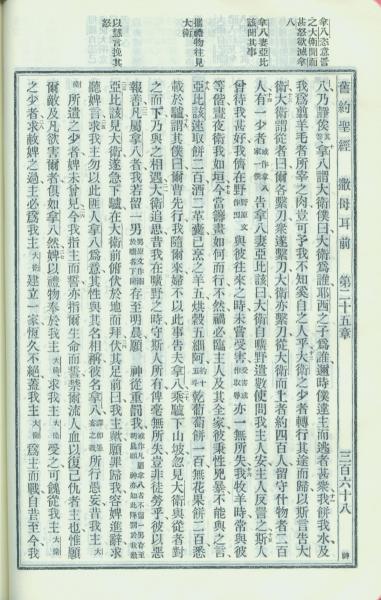 舊約聖經　撒母耳前　第二十五章　三百六十八
拿八恣意詈
之大衛聞而
甚怒欲滅拿
八
拿八妻亞比
該聞其事
攜禮物往見
大衛
以慧言挽其
怒
八乃靜俟拿八謂大衛僕曰大衛為誰耶西之子為誰邇時僕違主而逃者甚衆我餅我水及
我為翦羊毛者所宰之肉豈可予我不知奚自之人乎大衛之少者轉行其途而歸以斯言告大
衛大衛謂從者曰各繫刀衆遂繫刀大衛亦繫刀從大衛而上者約四百人留守什物者二百
人有一少者告拿八妻亞比該曰大衛自曠野遣數使問我主人安主人反詈之斯人
曾待我甚好我儕在野與彼往來之時未嘗受害亦一無所失我牧羊時常與彼
等偕晝夜衛我如垣今當籌畫如何而行不然禍必臨主人及其全家彼秉性兇暴不能與之言
亞比該速取餅二百酒二革囊已烹之羊五烘穀五細阿乾葡萄餅一百無花果餅二百悉
載於驢謂其僕曰爾曹先行我隨爾來婦不以此事告夫拿八乘驢下山坡忽見大衛與從者對
之而下乃與之相遇大衛追思昔我在曠野之時守斯人所有俾毫無所失豈非徒然乎彼以惡
報善凡屬拿八者我若留一男存至明晨願神從重罰我
亞比該見大衛遂急下驢在大衛前俯伏於地而拜伏其足前曰我主歟願罪歸我容婢進辭求
聽婢言求我主勿以此匪人拿八為意其性與其名相稱彼名拿八所行愚妄昔我主
大衛所遣之少者婢未曾見今我指主而誓亦指爾生命而誓禁爾流人血以復己仇者主也惟願
爾敵及凡欲害爾者俱如拿八然婢以禮物奉於我主大衛求我主大衛受之可餽從我主大衛
之少者求赦婢之過主必為我主大衛建立一家恆久不絕蓋我主大衛為主而戰自昔至今我